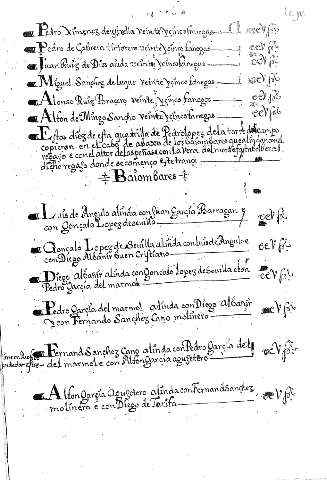 Pedro Ximenez de ysvella veinte y cinco fanegas xxv fs
Pedro de Cabrera tintorero veinte y cinco fanegas xxv fs
Juan Ruiz de Dios aida veinte y cinco fanegas xxv fs
Miguel Sanchez de luque veinte y cinco fanegas xxv fs
Alonso Ruiz bracero veinte y cinco fanegas xxv fs
Alfon de Mingo Sancho veinte y cinco fanegas xxv fs
Estos diez de esta quadrilla de Pedro lopez de la torre del campo
copieron en el cabo de abaxo de los baiombares
regajo e con el alto de las peñas e con la vera del monte
dicho regajo donde se començo este tranze
Baiombares
Luis de Angulo alinda con Juan Garcia Barragan y
con Gonçalo Lopez de sevilla xxv fs
Gonçalo Lopez de Sevilla alinda con Luis de Angulo e
con Diego Albañir buen Cristiano xxv fs
Diego Albañir alinda con Gonçalo Lopez de sevilla e con
Pedro Garcia del marmol xxv fs
Pedro Garcia del marmol alinda con Diego Albañir
y con Fernando Sanchez Cano molinero xxv fs
Fernand Sanchez Cano alinda con Pedro Garcia del
marmol e con Alfon Garcia agujetero xxv fs
Alfon Garcia Agujetero alinda con Fernand Sanchez
molinero e con Diego de Tarifa xxv fs